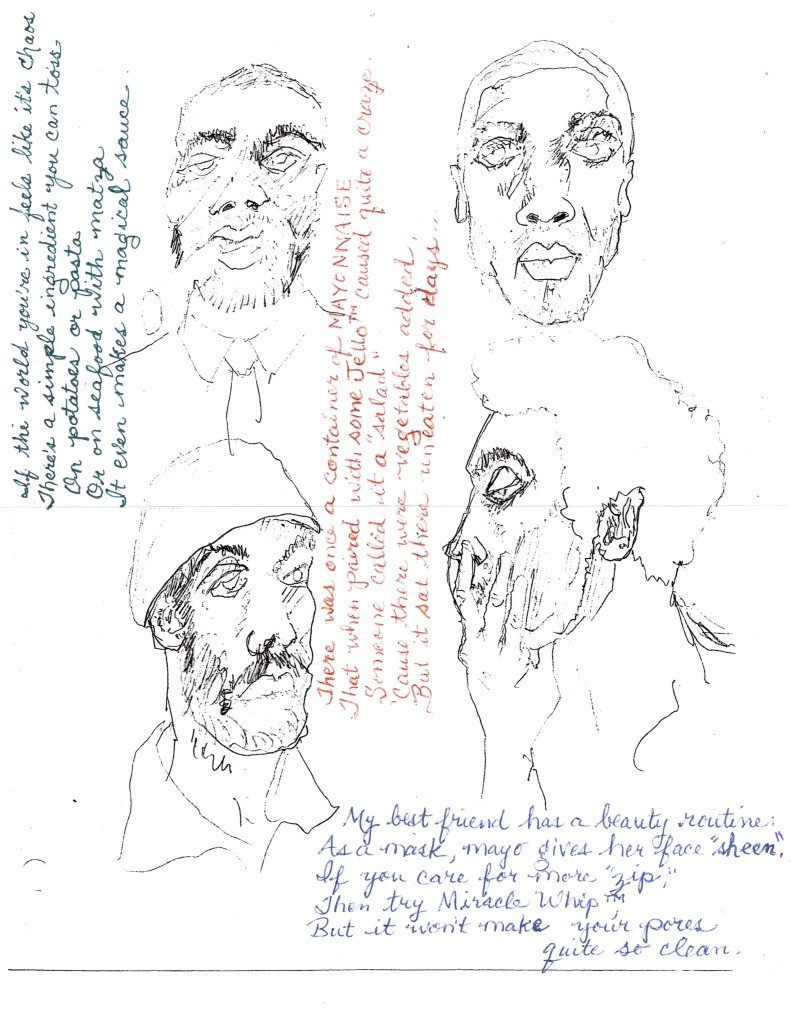 If the world you're in feels like it's chaos
There's a simple ingredient you can toss
On potatoes or pasta
Or on seafood with matza
It even makes a magical sauce.
There was once a container of MAYONNAISE
That when paired with some Jello™ caused quite a craze.
Someone called it a "salad"
'Cause there were vegetables added,
But it sat there uneaten for days...
My best friend has a beauty routine:
As a mask, mayo gives her face "sheen."
If you care for more "zip,"
Then try Miracle Whip™,
But it won't make your pores
quite so clean.